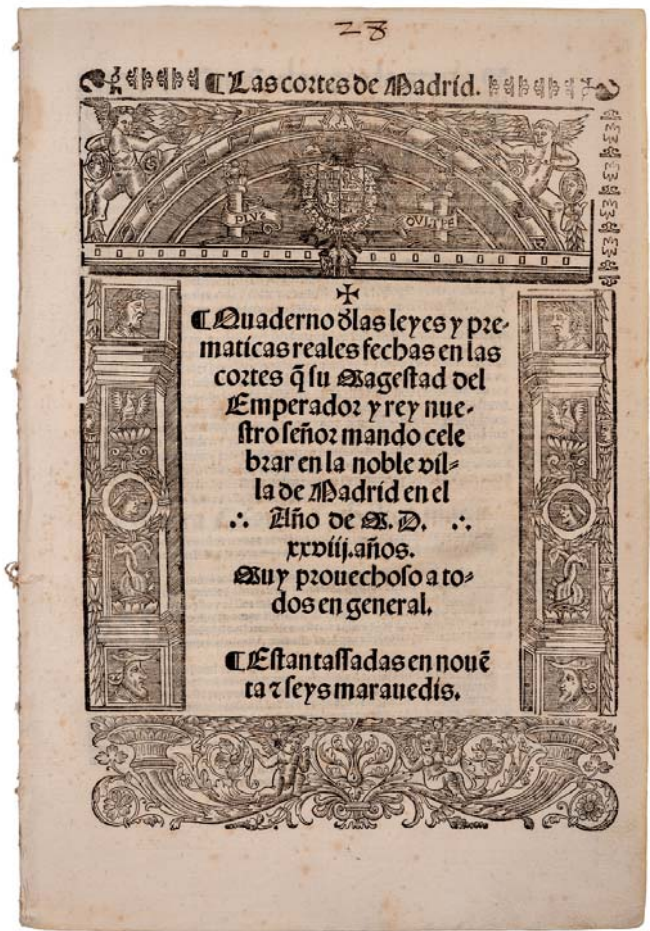 28
¶ Las cortes de Madrid.
PLVS
OVLTRE
✠
¶ Quaderno dlas leyes y pre-
maticas reales fechas en las
cortes q̃ su Magestad del
Emperador y rey nue-
stro señor mando cele
brar en la noble vil-
la de Madrid en el
∴ Año de M. D. ∴
xxviij. años.
Muy prouechoso a to-
dos en general.
¶ Estan tassadas en nouẽ
ta ⁊ seys marauedis.